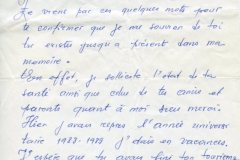 Je viens par ces quelques mots pour
te confirmer que je me souviens de toi
tu existes jusqu'à présent dans ma
mémoire.
En effet, je sollicite l'état de ta
santé ainsi que celui de tes amies et
parents quant à moi Dieu merci.
Hier j'avais repris l'année univers
taire 1988-1989 j'étais en vacances.
J'espère que tu avais fini ton tourisme